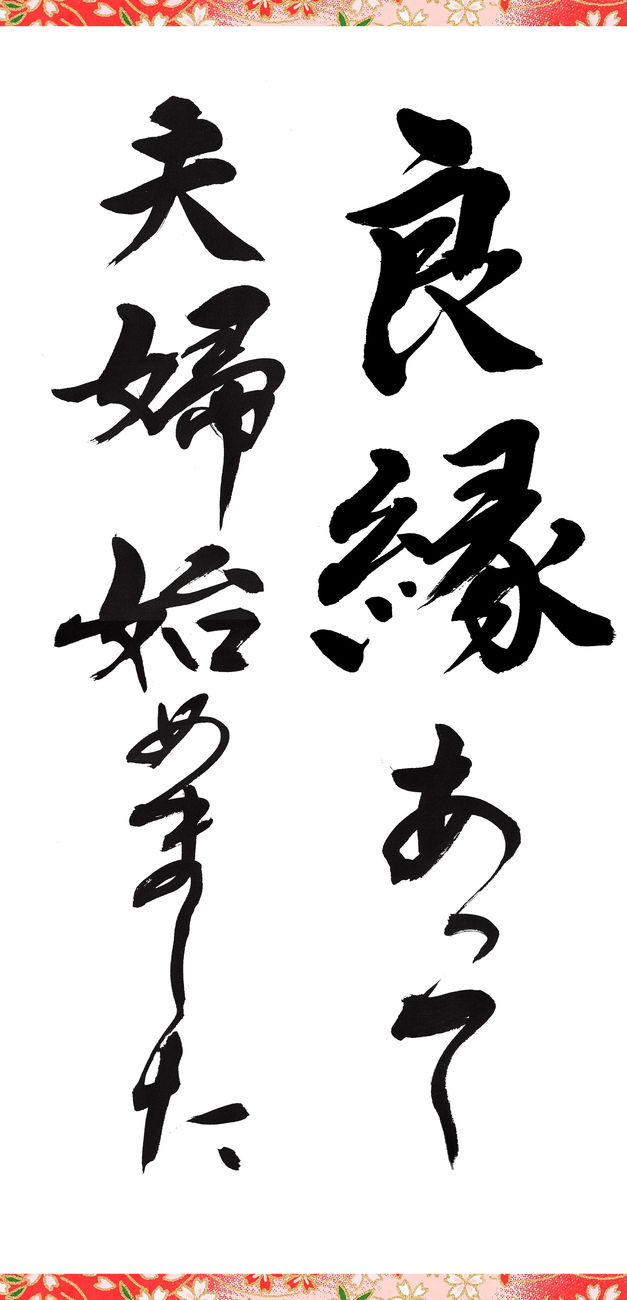 良縁あって
夫婦始めました